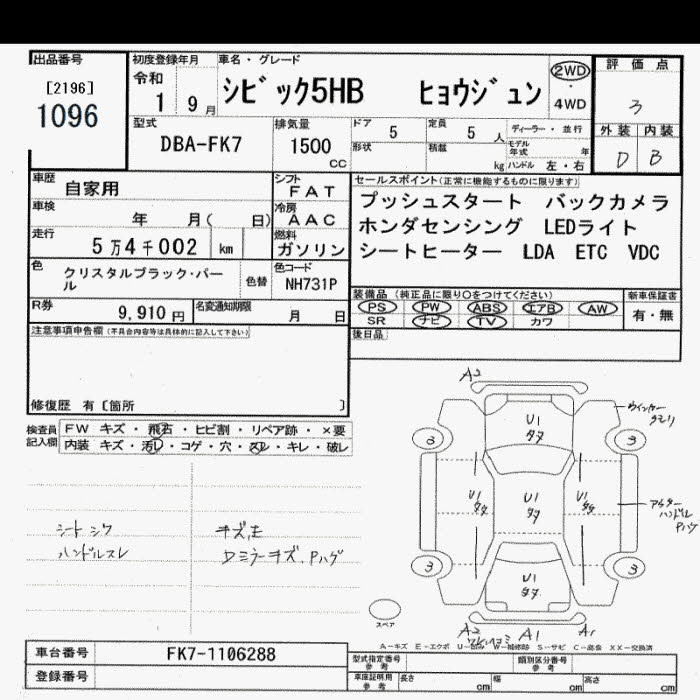 出品番号
[2196]
1096
初度登録年月
令和
1 9月
車名・グレード
シビック5HB ヒョウジュン
2WD
・
4WD
評価点
3
外装 内装
D B
型式
DBA-FK7
排気量
1500
cc
ドア 5
定員 5 人
形状
積載 kg
ディーラー・並行
モデル年式 年
ハンドル 左・右
車歴 自家用
車検 年 月( 日)
走行 5万4千002 km
シフト FAT
冷房 AAC
燃料 ガソリン
セールスポイント(正常に機能するものに限ります)
プッシュスタート バックカメラ
ホンダセンシング LEDライト
シートヒーター LDA ETC VDC
色 クリスタルブラック・パール
色替
色コード
NH731P
R券 9,910円
名変通知期限 月 日
装備品(純正品に限り○をつけてください)
PS PW ABS エアB AW
SR ナビ TV カワ
新車保証書
有・無
後日品
注意事項申告欄(不具合内容等は具体的に記入して下さい)
修復歴 有〔箇所 〕
検査員記入欄
FW キズ・飛石・ヒビ割・リペア跡・×要
内装 キズ・汚レ・コゲ・穴・スレ・キレ・破レ
シート シワ
ハンドルスレ
Dミラーキズ、Pハゲ
A2
ウインカー
3 3
U1
U1 U1 U1
アウター
ハンドル
Pハゲ
3 3
U1
スペア
A2 A1 A1
A−キズ E−エクボ U−凹み W−補修跡 S−サビ C−腐食 XX−交換済
車台番号 FK7-1106288
登録番号
型式指定番号 参考
類別区分番号 参考
車庫証明用 参考
長さ cm 幅 cm 高さ cm